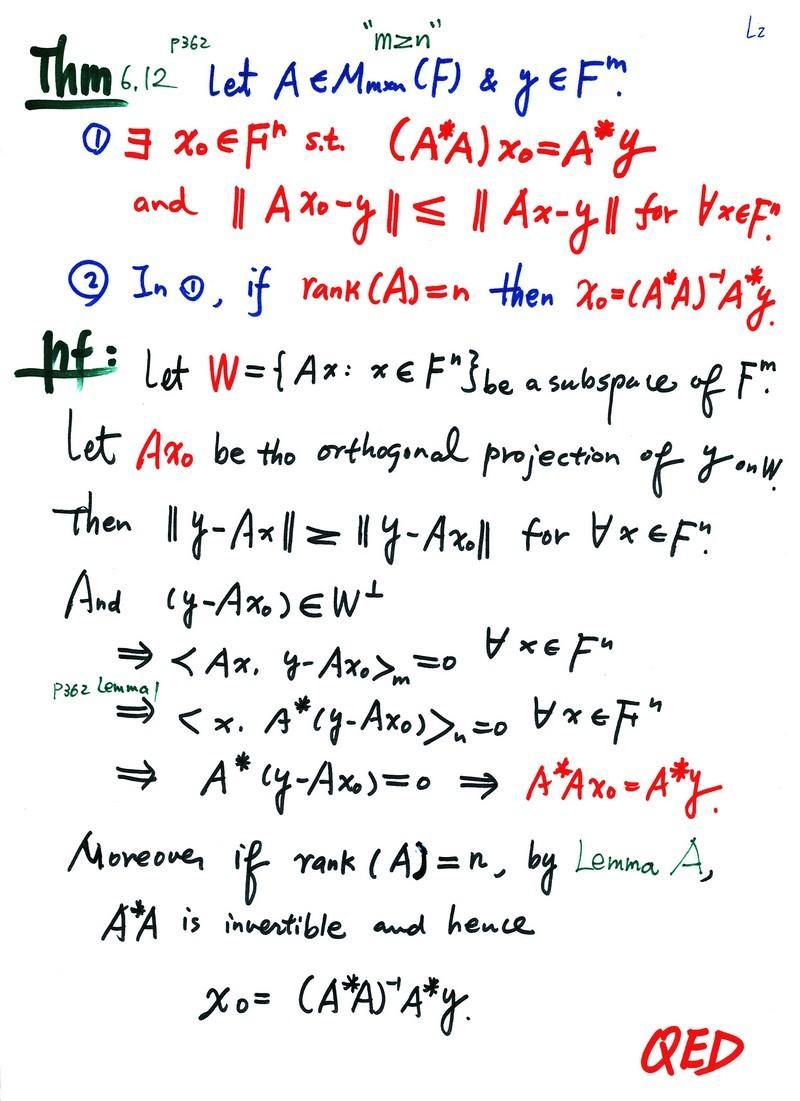 P362 "m≥n" L2
Thm 6.12 Let A∈Mm×n(F) & y∈Fᵐ.
① ∃ x₀∈Fⁿ s.t. (A*A)x₀=A*y
and ‖Ax₀-y‖ ≤ ‖Ax-y‖ for ∀x∈Fⁿ.
② In ①, if rank(A)=n then x₀=(A*A)⁻¹A*y.
pf: Let W={Ax: x∈Fⁿ} be a subspace of Fᵐ.
Let Ax₀ be tho orthogonal projection of y on W.
Then ‖y-Ax‖≥‖y-Ax₀‖ for ∀x∈Fⁿ.
And (y-Ax₀)∈W⊥
⇒ <Ax, y-Ax₀>ₘ=0 ∀x∈Fⁿ
P362 Lemma1
⇒ <x, A*(y-Ax₀)>ₙ=0 ∀x∈Fⁿ
⇒ A*(y-Ax₀)=0 ⇒ A*Ax₀=A*y.
Moreover if rank(A)=n, by Lemma A,
A*A is invertible and hence
x₀= (A*A)⁻¹A*y.
QED